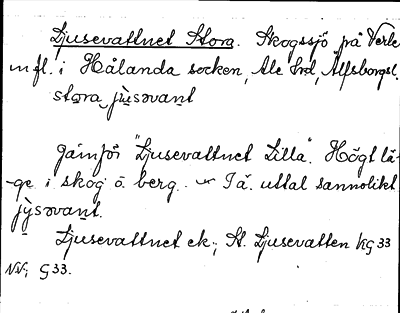 Ljusevattnet Stora. Skogssjö på Verle
m fl. i Hålanda socken, Ale hrd, Älfsborgsl.
stora jùsəvant
Jämför "Ljusevattnet Lilla". Högt lä-
ge i skog o. berg. I ä. uttal sannolikt
jỳsəvant.
Ljusevattnet ek; St. Ljusevatten kG 33
NV; G 33.